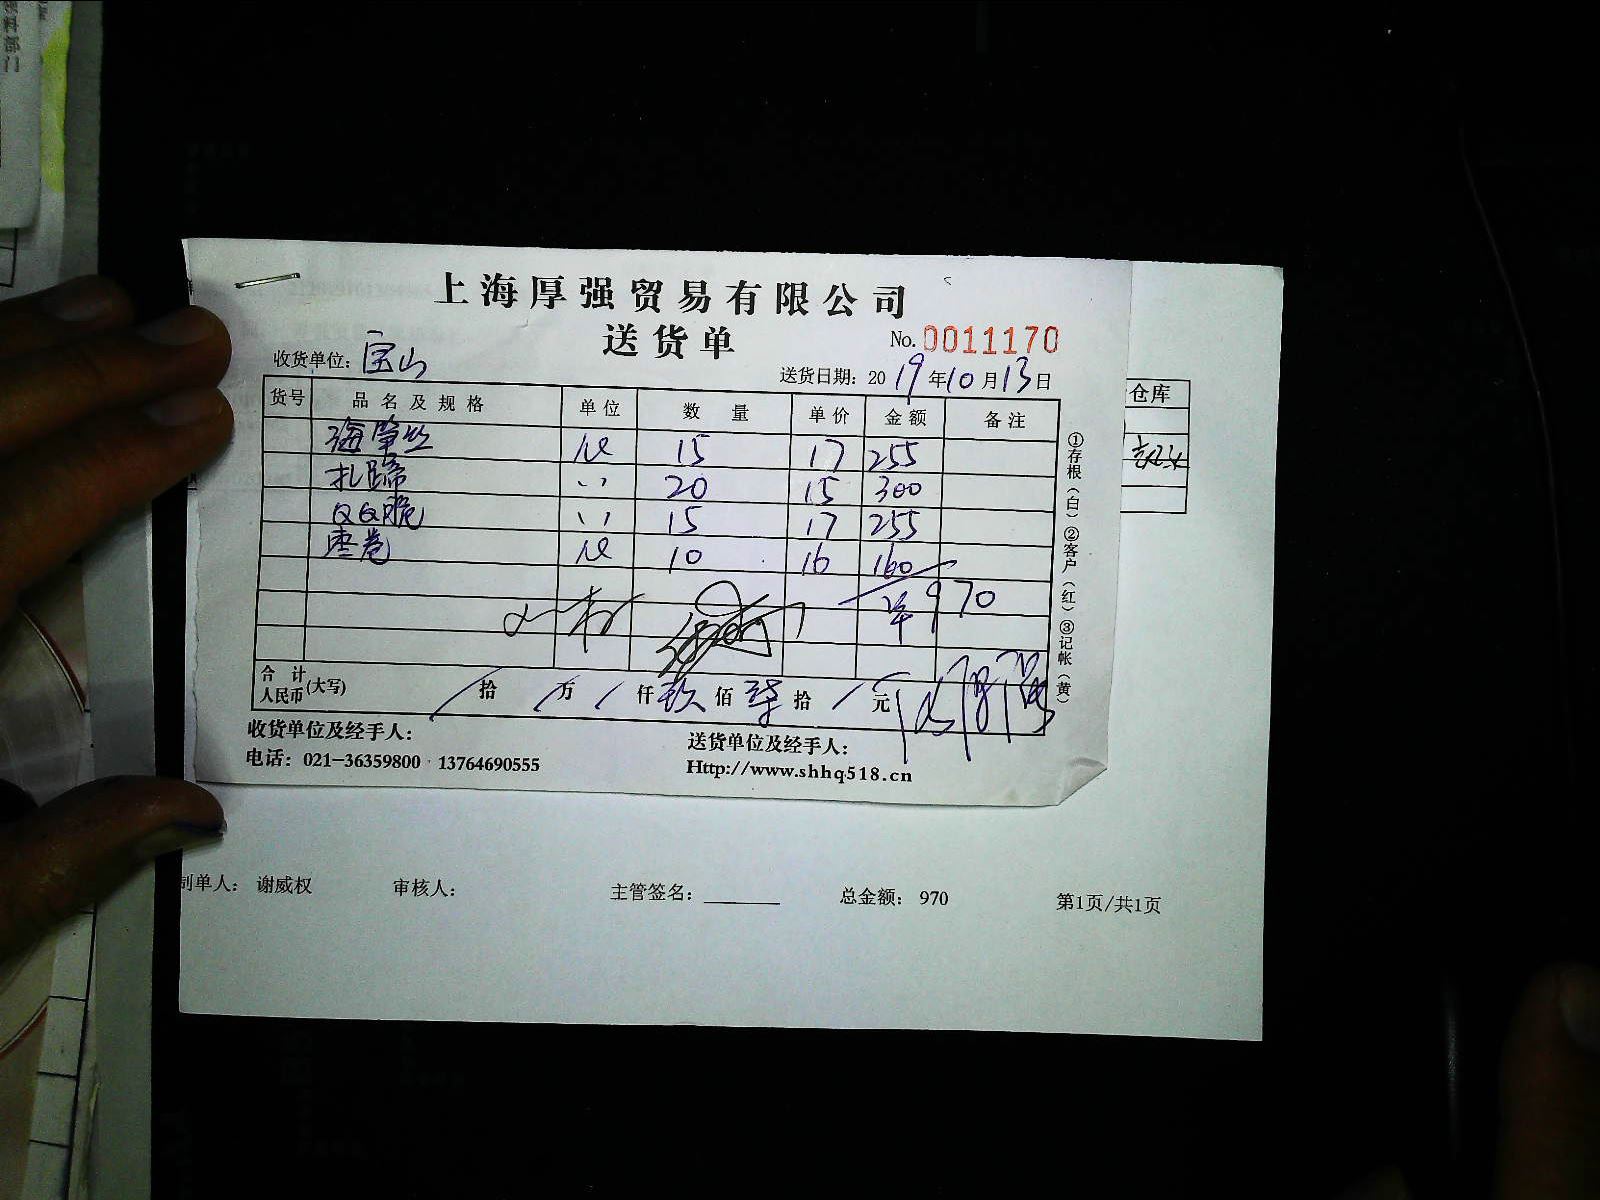 领料部门
上海厚强贸易有限公司
送货单
No. 0011170
收货单位: 宝山
送货日期: 2019年10月13日
货号 品名及规格 单位 数量 单价 金额 备注
海笋丝 15 17 255
扎蹄 〃 20 15 300
QQ脆 〃 15 17 255
枣卷 10 16 160
970
合计人民币(大写) / 拾 / 万 / 仟 玖 佰 柒 拾 / 元
①存根(白)②客户(红)③记帐(黄)
仓库
收货单位及经手人:
送货单位及经手人:
电话: 021-36359800 13764690555
Http://www.shhq518.cn
制单人: 谢威权 审核人: 主管签名: 总金额: 970 第1页/共1页